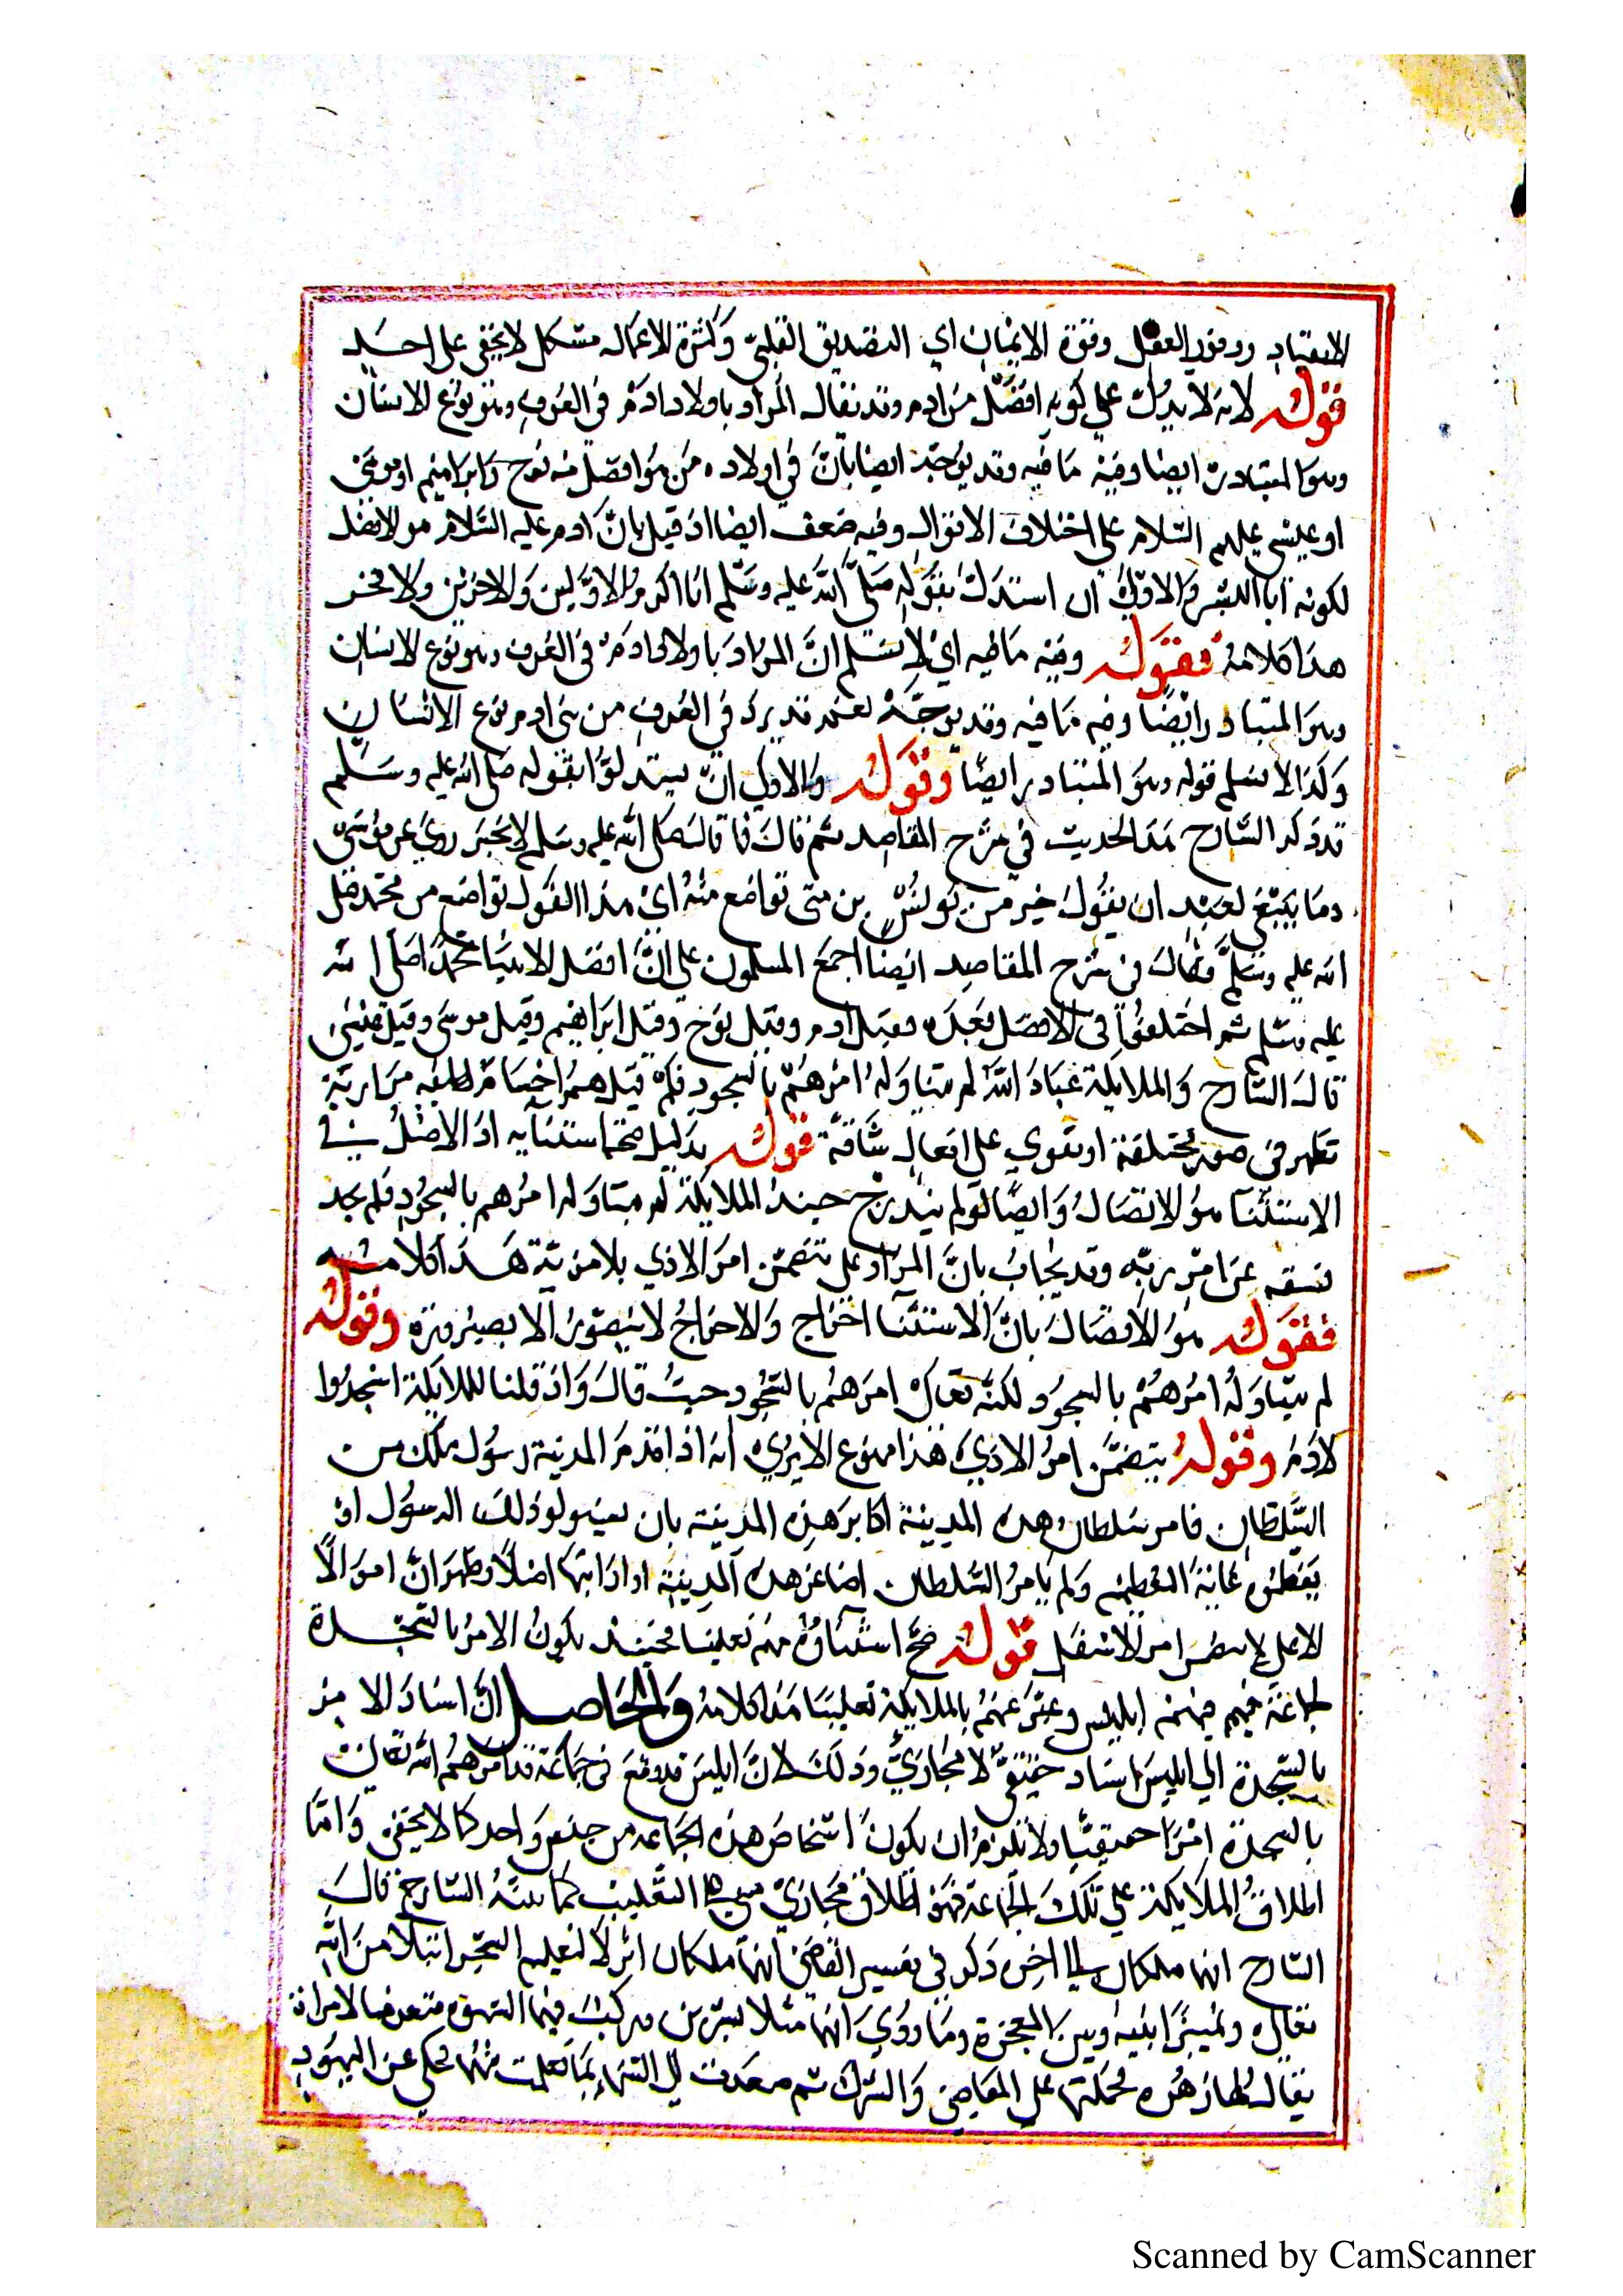 الانقياد ووفور العقل وقوة الايمان اي التصديق القلبي وكثرة الاعمال مشكل لا يخفى على احد
قوله لانه لا يدل على كونه افضل من ادم وقد يقال المراد باولاد ادم في العرف وهو نوع الانسان
وهو المتبادر ايضا وفيه ما فيه وقد يوجه ايضا بان في اولاده من هو افضل منه نوح وابراهيم او موسى
او عيسى عليهم السلام على اختلاف الاقوال وفيه ضعف ايضا اذ قيل بان ادم عليه السلام هو الافضل
لكونه ابا البشر والاولى ان استدل بقوله صلى الله عليه وسلم انا اكرم الاولين والاخرين ولا فخر
هذا كلامه فقوله وفيه ما فيه اي لا نسلم ان المراد باولاد ادم في العرف وهو نوع الانسان
وهو المتبادر ايضا وفيه ما فيه وقد يوجه نعم قد يرد في العرف من بني ادم نوع الانسان
وكذا لا نسلم قوله وهو المتبادر ايضا وقوله والاولى ان يستدلوا بقوله صلى الله عليه وسلم
قد ذكر الشارح هذا الحديث في شرح المقاصد ثم قال فما قال صلى الله عليه وسلم لا تخير وني على موسى
وما ينبغي لعبد ان يقول خير من يونس بن متى تواضع منه اي هذا القول تواضع من محمد صلى
الله عليه وسلم وقال في شرح المقاصد ايضا اجمع المسلمون على ان افضل الانبيا محمد صلى الله
عليه وسلم ثم اختلفوا في الافضل بعده فقيل ادم وقيل نوح وقيل ابراهيم وقيل موسى وقيل عيسى
قال الشارح والملايكة عباد الله لم يتناوله امرهم بالسجود فلم قيل هم اجسام لطيفة
تظهر في صور مختلفة او تقوي على افعال شاقة قوله بدليل صحة استثنايه اذ الاصل في
الاستثنا هو الاتصال وايضا لو لم يندرج حينئذ الملايكة لم يتناوله امرهم بالسجود فلم يجد
فسقه عن امر ربه وقد يجاب بان المراد على تتضمن امر الادنى بلا مزية هذا كلامه
فقوله هو الاتصال بان الاستثنا اخراج والاخراج لا يتصور الا بصيرورة وقوله
لم يتناوله امرهم بالسجود لكنه تعالى امرهم بالسجود حيث قال واذ قلنا للملايكة اسجدوا
لادم وقوله يتضمن امر الادنى هذا ممنوع الا يرى انه اذا قدم المدينة رسول ملك من
السلطان فامر سلطان هذه المدينة اكابر هذه المدينة بان يستقبلوا ذلك الرسول او
يعظموه غاية التعظيم ولم يامر السلطان اصاغر هذه المدينة او اراذلها اصلا وظهر ان امر
الاعلى لا يتضمن امر الاسفل قوله صح استثناوه منهم تغليبا فحينئذ يكون الامر بالسجدة
لجماعة فيهم ابليس وعبر عنهم بالملايكة تغليبا هذا كلامه والحاصل ان اسناد الامر
بالسجدة الى ابليس اسناد حقيقي لا مجازي وذلك لان ابليس قد وقع في جماعة قد امرهم الله تعالى
بالسجدة امرا حقيقيا ولا يلزم ان يكون اشخاص هذه الجماعة من جنس واحد كما لا يخفى واما
اطلاق الملايكة على تلك الجماعة فهو اطلاق مجازي على التغليب كما بينه الشارح قال
الشارح انهما ملكان الى اخره ذكر في تفسير القاضي انهما ملكان انزلا لتعليم السحر ابتلا من الله
تعالى وتمييزا بينه وبين المعجزة وما روي انهما مثلا بشرين وركبت فيهما الشهوة فتعرضا لامراة
يقال لها زهرة فحملتهما على المعاصي والشرك ثم صعدت الى السماء بما تعلمت منهما محكي عن اليهود